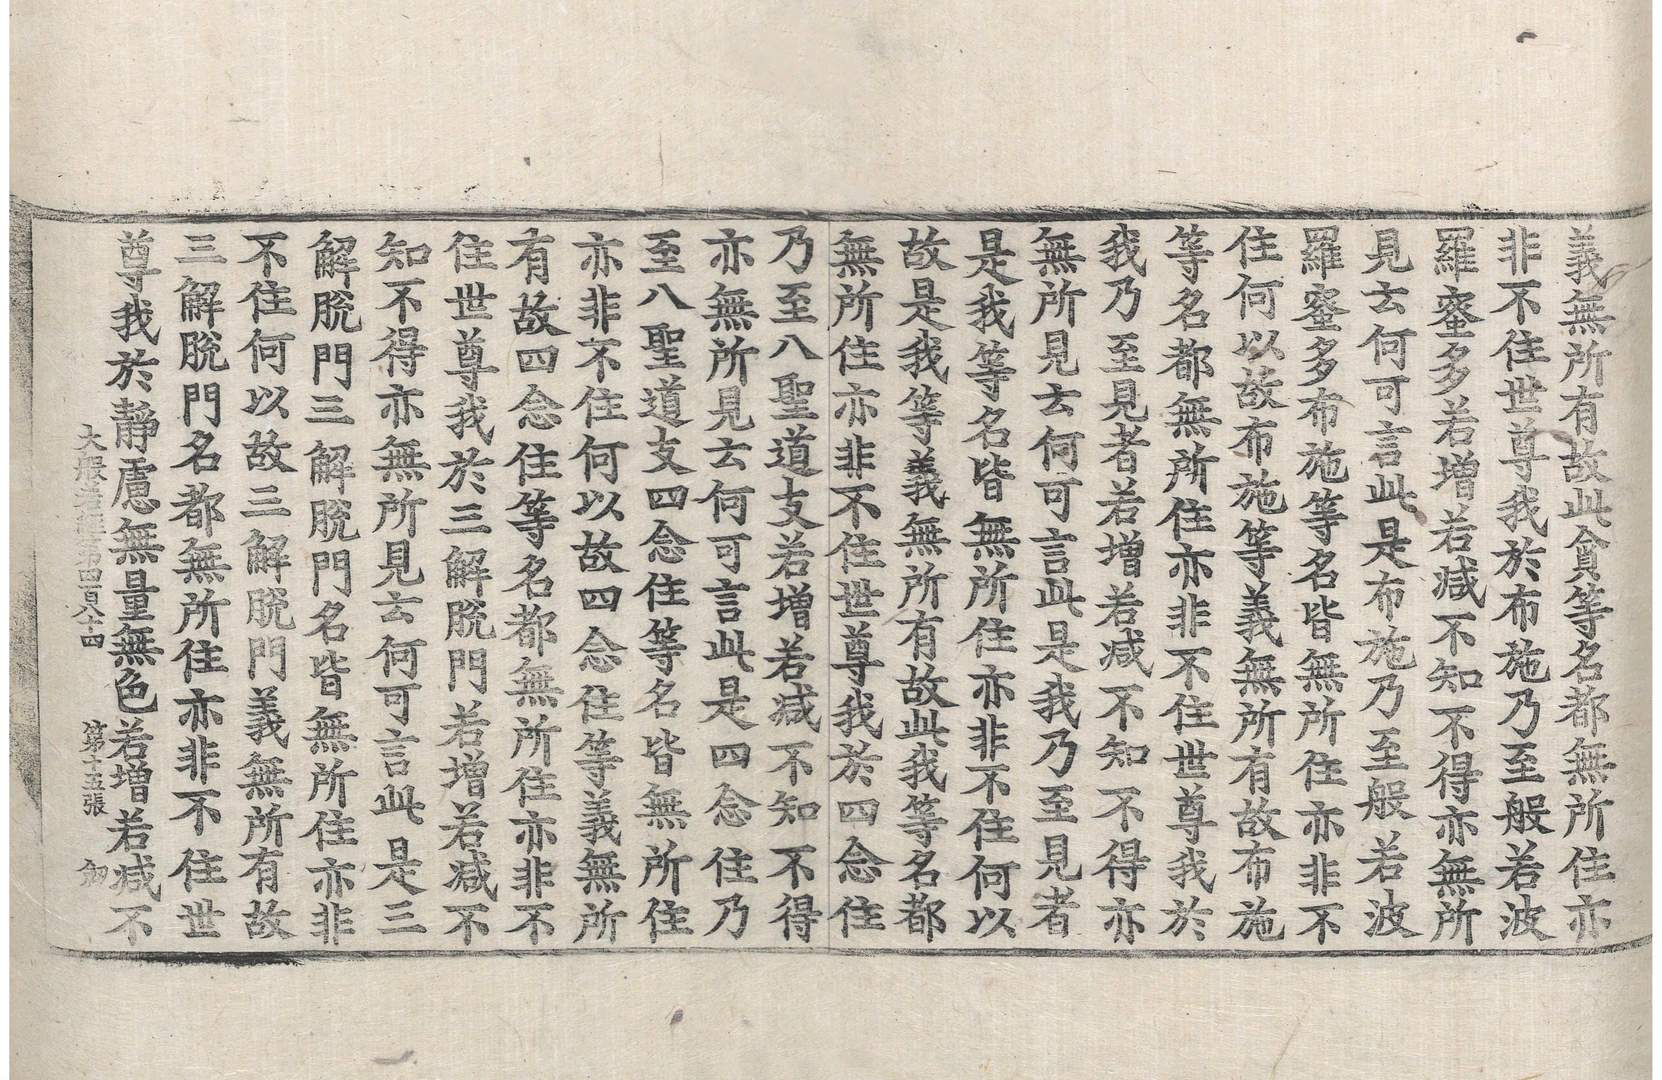 義無所有故此貪等名都無所住亦
非不住世尊我於布施乃至般若波
羅蜜多若增若減不知不得亦無所
見云何可言此是布施乃至般若波
羅蜜多布施等名皆無所住亦非不
住何以故布施等義無所有故布施
等名都無所住亦非不住世尊我於
我乃至見者若增若減不知不得亦
無所見云何可言此是我乃至見者
是我等名皆無所住亦非不住何以
故是我等義無所有故此我等名都
無所住亦非不住世尊我於四念住
乃至八聖道支若增若減不知不得
亦無所見云何可言此是四念住乃
至八聖道支四念住等名皆無所住
亦非不住何以故四念住等義無所
有故四念住等名都無所住亦非不
住世尊我於三解脫門若增若減不
知不得亦無所見云何可言此是三
解脫門三解脫門名皆無所住亦非
不住何以故三解脫門義無所有故
三解脫門名都無所住亦非不住世
尊我於靜慮無量無色若增若減不
大般若經第四百八十四 第十五張